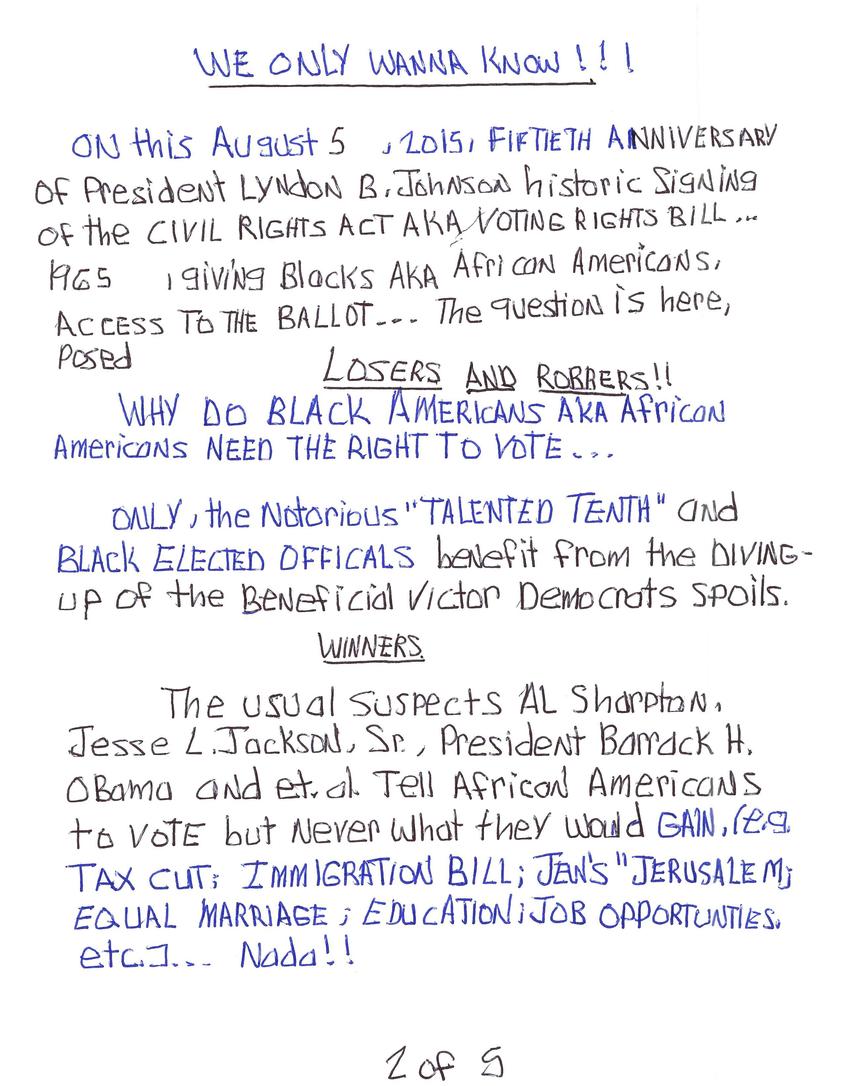 WE ONLY WANNA KNOW!!!
ON this August 5 , 2015, FIFTIETH ANNIVERSARY
Of President LYNDON B. Johnson historic Signing
of the CIVIL RIGHTS ACT AKA VOTING RIGHTS BILL...
1965 , giving Blacks AKA African Americans,
ACCESS TO THE BALLOT.... The question is here,
Posed
LOSERS AND ROBBERS!!
WHY DO BLACK AMERICANS AKA African
Americans NEED THE RIGHT TO VOTE...
ONLY, the Notorious "TALENTED TENTH" and
BLACK ELECTED OFFICALS benefit from the DIVING-
up of the Beneficial Victor Democrats spoils.
WINNERS.
The usual suspects AL Sharpton,
Jesse L. Jackson, Sr., President Barrack H.
Obama and et. al. Tell African Americans
to VOTE but Never what they would GAIN, (e.g.
TAX CUT; IMMIGRATION BILL; JEW'S "JERUSALEM;
EQUAL MARRIAGE; EDUCATION; JOB OPPORTUNTIES,
etc.].... Nada!!
2 of 5